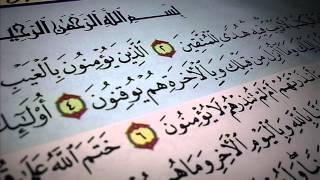 بِسْمِ اللَّهِ الرَّحْمَٰنِ الرَّحِيمِ
فِيهِ هُدًى لِّلْمُتَّقِينَ ٢ الَّذِينَ يُؤْمِنُونَ بِالْغَيْبِ
أُنزِلَ مِن قَبْلِكَ وَبِالْآخِرَةِ هُمْ يُوقِنُونَ ٤ أُولَٰئِكَ
أَمْ لَمْ تُنذِرْهُمْ لَا يُؤْمِنُونَ ٦ خَتَمَ اللَّهُ عَلَىٰ
وَبِالْيَوْمِ الْآخِرِ وَمَا هُم